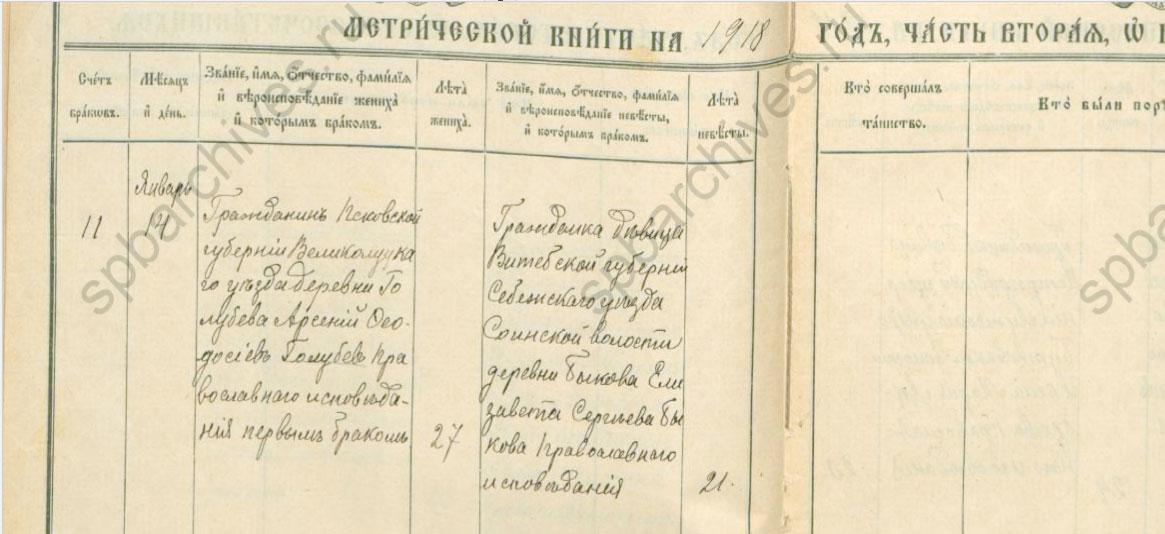 МЕТРИ́ЧЕСКОЙ КНИ́ГИ НА 1918
ГО́ДЪ, ЧА́СТЬ ВТОРА́Я, Ѡ
Сче́тъ
бра́ковъ.
Мѣ́сяцъ
и҆ де́нь.
Зва́нїе, и҆́мя, ѻ҆́тчество, фами́лїя
и҆ вѣроисповѣ́данїе жениха̀
и҆ кото́рымъ бра́комъ.
Лѣ́та
жениха̀.
Зва́нїе, и҆́мя, ѻ҆́тчество, фами́лїя
и҆ вѣроисповѣ́данїе невѣ́сты,
и҆ кото́рымъ бра́комъ.
Лѣ́та
невѣ́сты.
Кто̀ соверша́лъ
та́инство.
Кто̀ бы́ли
11
Январь
14
Гражданинъ Псковской
губерніи Великолуцка
го уѣзда деревни Го
лубева Арсеній Ѳео-
досіевъ Голубевъ пра
вославнаго исповѣда-
нія первымъ бракомъ
27
Гражданка дѣвица
Витебской губерніи
Себежскаго уѣзда
Соинской волости
деревни Быкова Ели
завета Сергѣева Бы
кова православнаго
исповѣданія
21.
spbarchives.ru
spbarchives.ru
spba